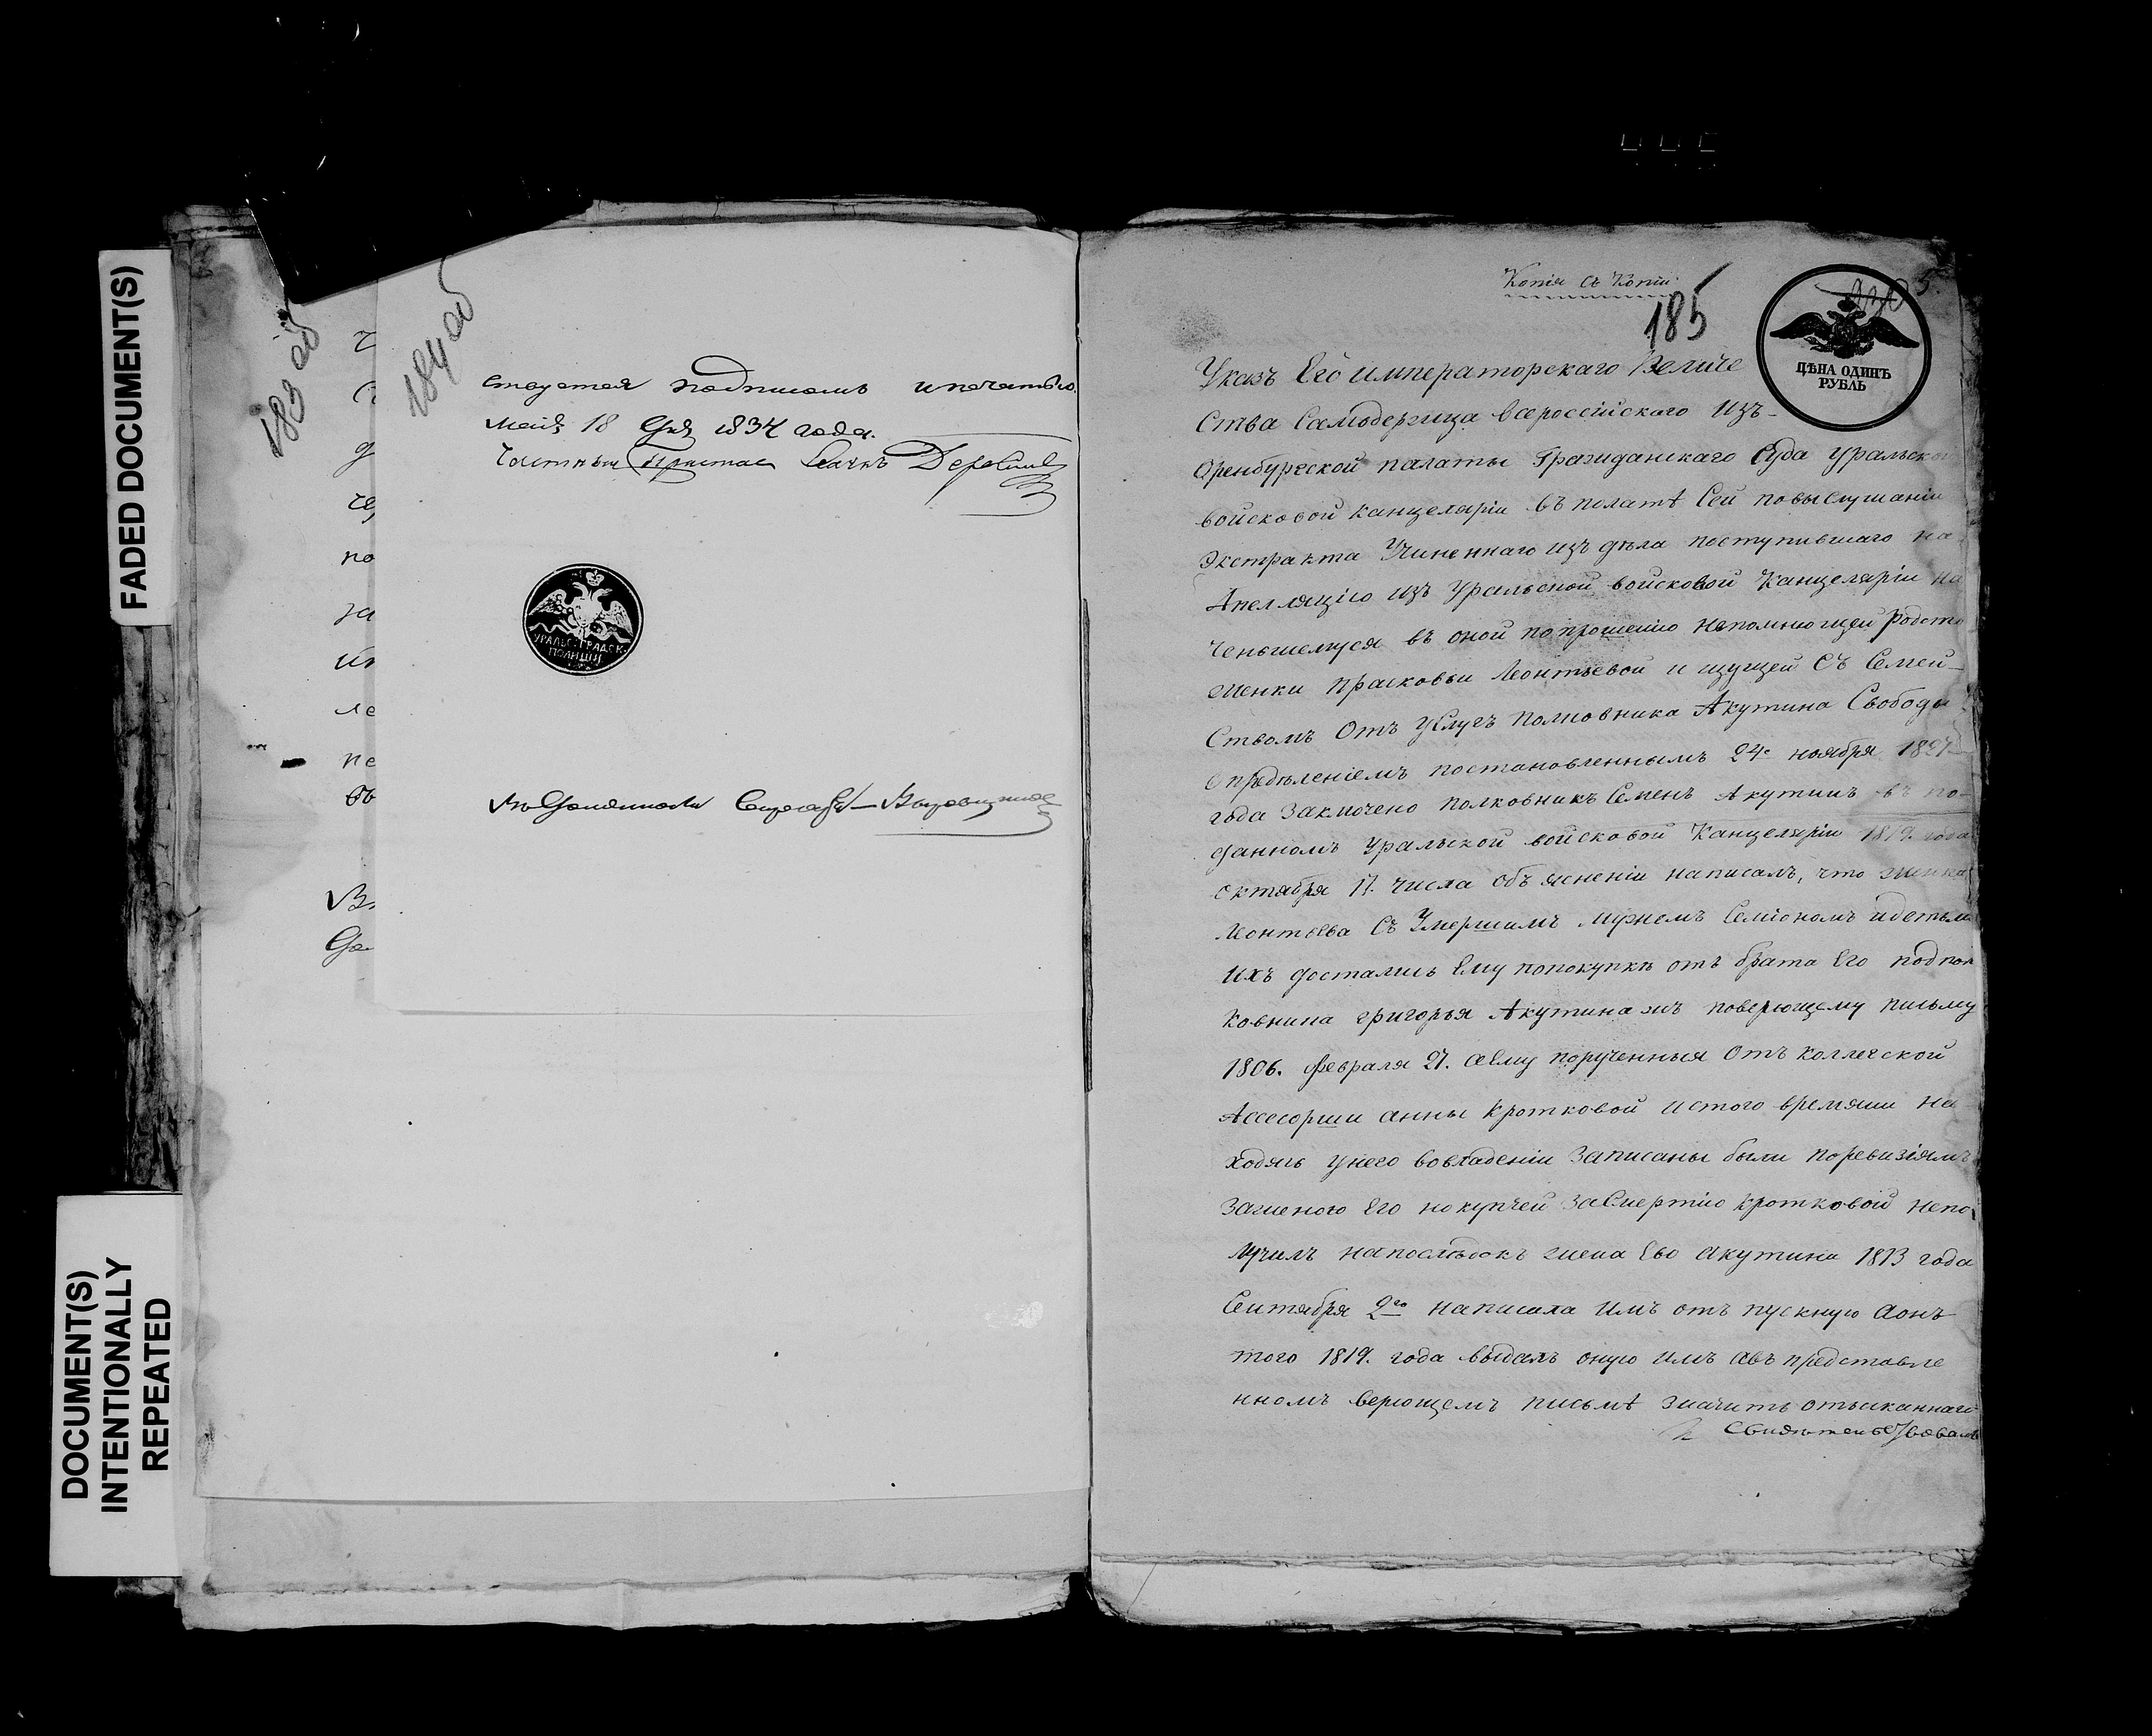 FADED DOCUMENT(S)
DOCUMENT(S)
INTENTIONALLY
REPEATED
183 об
184 об
ствуется подписомъ и печатью.
Маія 18 дня 1834 года.
Частный Приставъ
УРАЛЬС: ГРАДСК:
ПОЛИЦІИ
Въ должности
Копія съ Копіи
185
5.
ЦѢНА ОДИНЪ
РУБЛЬ
Указъ Его императорскаго Величе
ства Самодержца всероссійскаго Изъ
Оренбургской палаты Гражданскаго Суда уральской
войсковой канцеляріи въ полатѣ Сей повыслушаніи
Экстракта Учиненнаго изъ дѣла поступившаго на
Апелляцію изъ Уральской войсковой Канцеляріи на
ченьшемуся въ оной попрошенію непомнющей родств
женки прасковьи Леонтьевой и щущей Съ Семей-
ствомъ Отъ Услугъ полковника Акутина Свободы
опредѣленіемъ постановленнымъ 24е ноября 1827
года Заключено полковникъ Семенъ Акутинъ въ по-
данномъ уральской войсковой Канцеляріи 1819. года
октября 17. числа объясненіи написалъ, что женка
Леонтьева Съ Умершимъ мужемъ Семіономъ идетьми
ихъ достались Ему попокупкѣ отъ брата Его подпол
ковника григорья Акутина жъ поверющему письму
1806. февраля 27. аему порученныя Отъ коллегской
Ассесорши анны Кротковой истого времяни на
ходясь унего вовладеніи записаны были поревизіямъ
заженою Его но купчей заСмертію кротковой непо
лучилъ напослѣдокъ жена Ево Акутина 1813 года
Сентября 2го написала имъ отъ пускную Аонъ
того 1819. года выдалъ оную имъ авъ представле
нномъ верющемъ письмѣ значитъ отысканнаго
Свидѣтельствовалъ